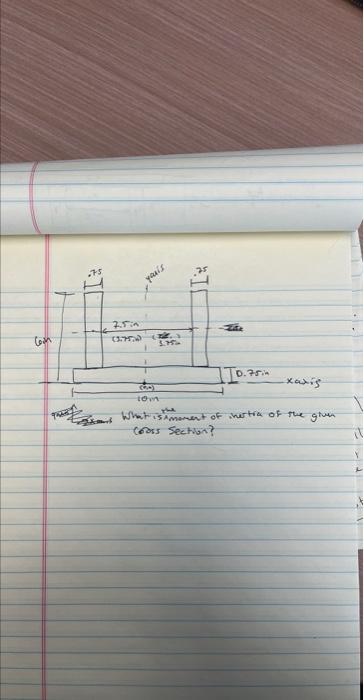 .75
yaxis
.75
7.5in
6in
(3.75in)
3.75in
0.75in
xaxis
(0,0)
10in
the
What is moment of inertia of the given
Cross Section?